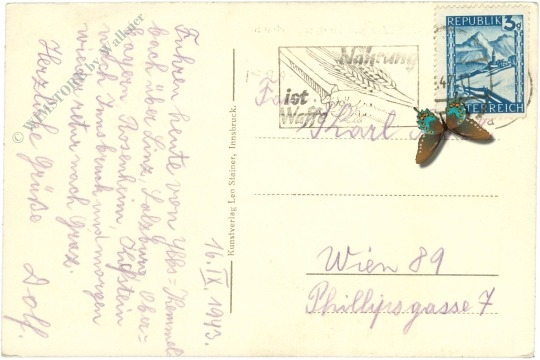 Fuhren heute von Ybbs=Kemmel
bach über Linz, Salzburg, Ober=
bayern, Rosenheim, Kufstein
nach Innsbruck und morgen
wieder retur nach Graz.
Herzliche Grüße
Dolf.
16. IX. 1943.
© by Walkner
Kunstverlag Leo Stainer, Innsbruck.
Nahrung
ist
Waffe
REPUBLIK 3
ÖSTERREICH
Karl
Wien 89
Phillipsgasse 7